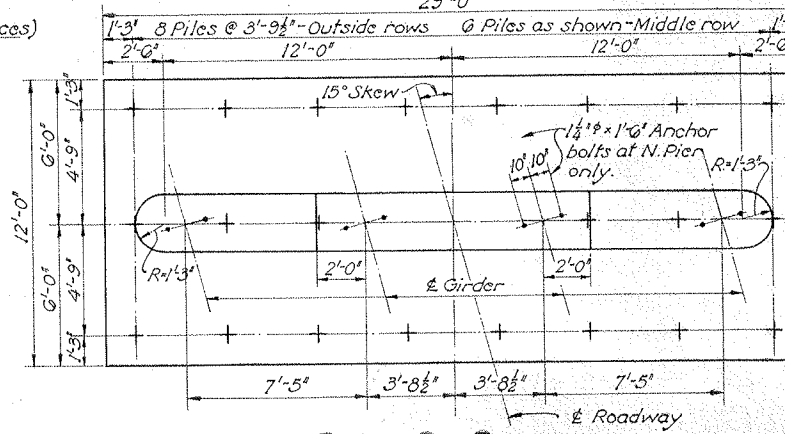 29'-0"
ces)
1'-3" 8 Piles @ 3'-9½"-Outside rows 6 Piles as shown-Middle row 1'-
2'-6" 12'-0" 12'-0" 2'-6
15° Skew
1'-3"
6'-0"
4'-9"
12'-0"
6'-0"
4'-9"
1'-3"
1¼"ϕ x 1'-6" Anchor
bolts at N. Pier
only.
10" 10"
R=1'-3"
R=1'-3"
2'-0" 2'-0"
℄ Girder
7'-5" 3'-8½" 3'-8½" 7'-5"
℄ Roadway